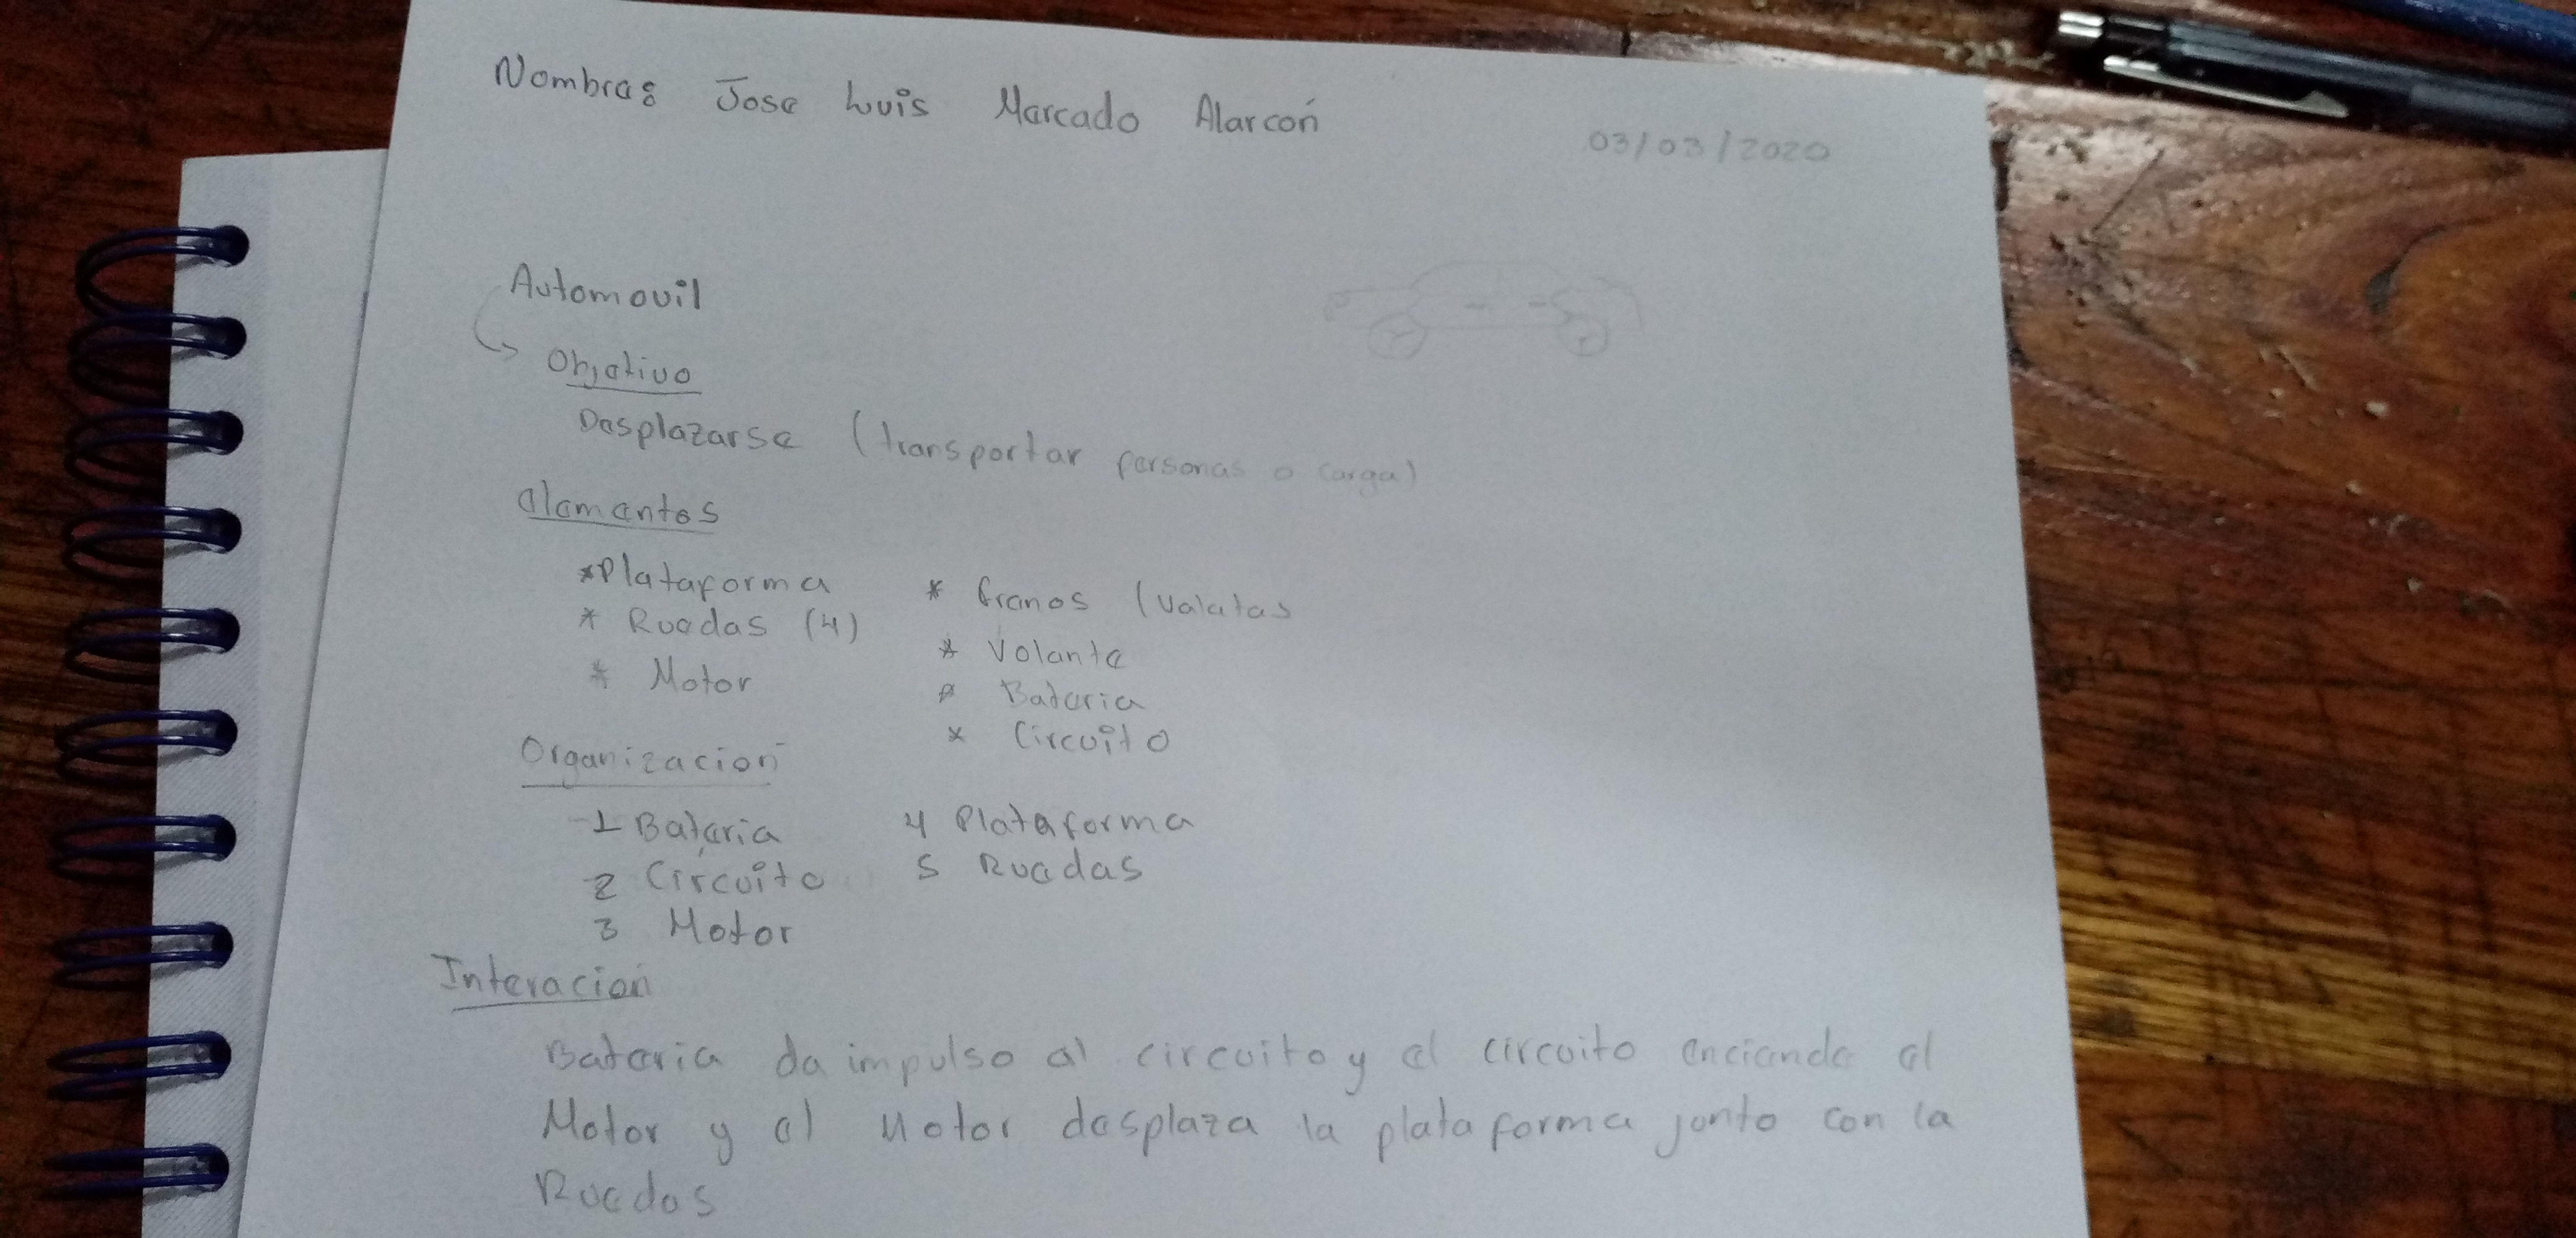 Nombre: Jose Luis Mercado Alarcón
03/03/2020
Automovil
Objetivo
Desplazarse (transportar personas o carga)
elementos
* Plataforma
* Ruedas (4)
* Motor
* frenos (Valatas
* Volante
* Bateria
* Circuito
Organización
1 Bateria
2 Circuito
3 Motor
4 Plataforma
5 Ruedas
Interación
Bateria da impulso al circuito y el circuito enciende el
Motor y el Motor desplaza la plataforma junto con la
Ruedas